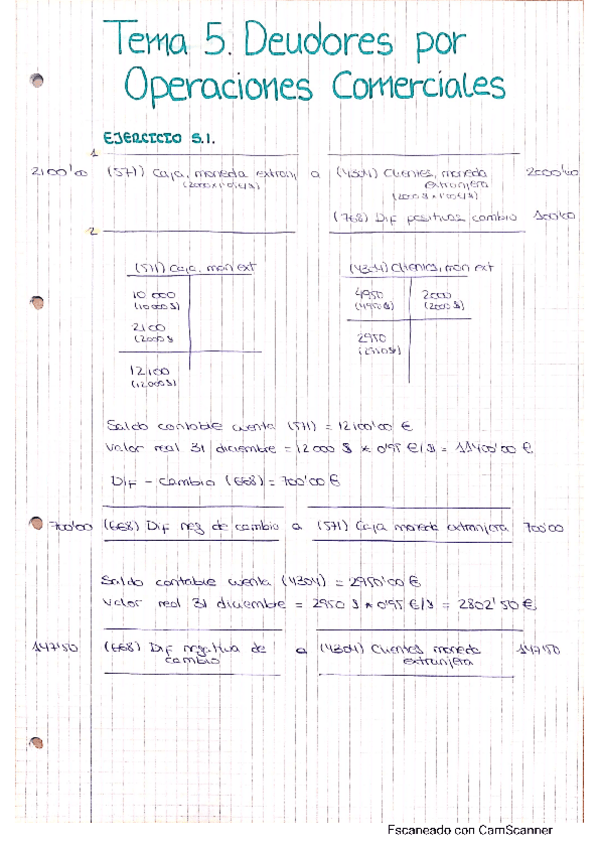 Tema 5. Deudores por
Operaciones Comerciales
EJERCICIO 5.1.
1
2100'00 (571) Caja, moneda extranj a (4304) Clientes, moneda extranjera 2000'00
(2000$ x 1'00 €/$)
(768) Dif positivas cambio 100'00
2
(571) Caja, mon ext (4304) Clientes, mon ext
10 000 4950 2000
(10000 $) (4950 $) (2000 $)
2100 2950
(2000 $ (2950$)
12100
(12000$)
Saldo contable cuenta (571) = 12100'00 €
Valor real 31 diciembre = 12 000 $ * 0'95 €/$ = 11400'00 €
Dif - cambio (668) = 700'00 €
700'00 (668) Dif neg de cambio a (571) Caja moneda extranjera 700'00
Saldo contable cuenta (4304) = 2950'00 €
Valor real 31 diciembre = 2950 $ * 0'95 €/$ = 2802'50 €
147'50 (668) Dif negativa de cambio a (4304) Clientes moneda extranjera 147'50
Escaneado con CamScanner